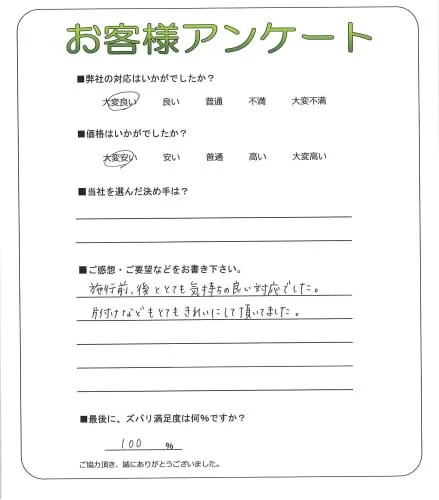 お客様アンケート
■弊社の対応はいかがでしたか？
大変良い 良い 普通 不満 大変不満
■価格はいかがでしたか？
大変安い 安い 普通 高い 大変高い
■当社を選んだ決め手は？
■ご感想・ご要望などをお書き下さい。
施行前、後ととても気持ちの良い対応でした。
片付けなどもとてもきれいにして頂いてました。
■最後に、ズバリ満足度は何%ですか？
100 %
ご協力頂き、誠にありがとうございました。